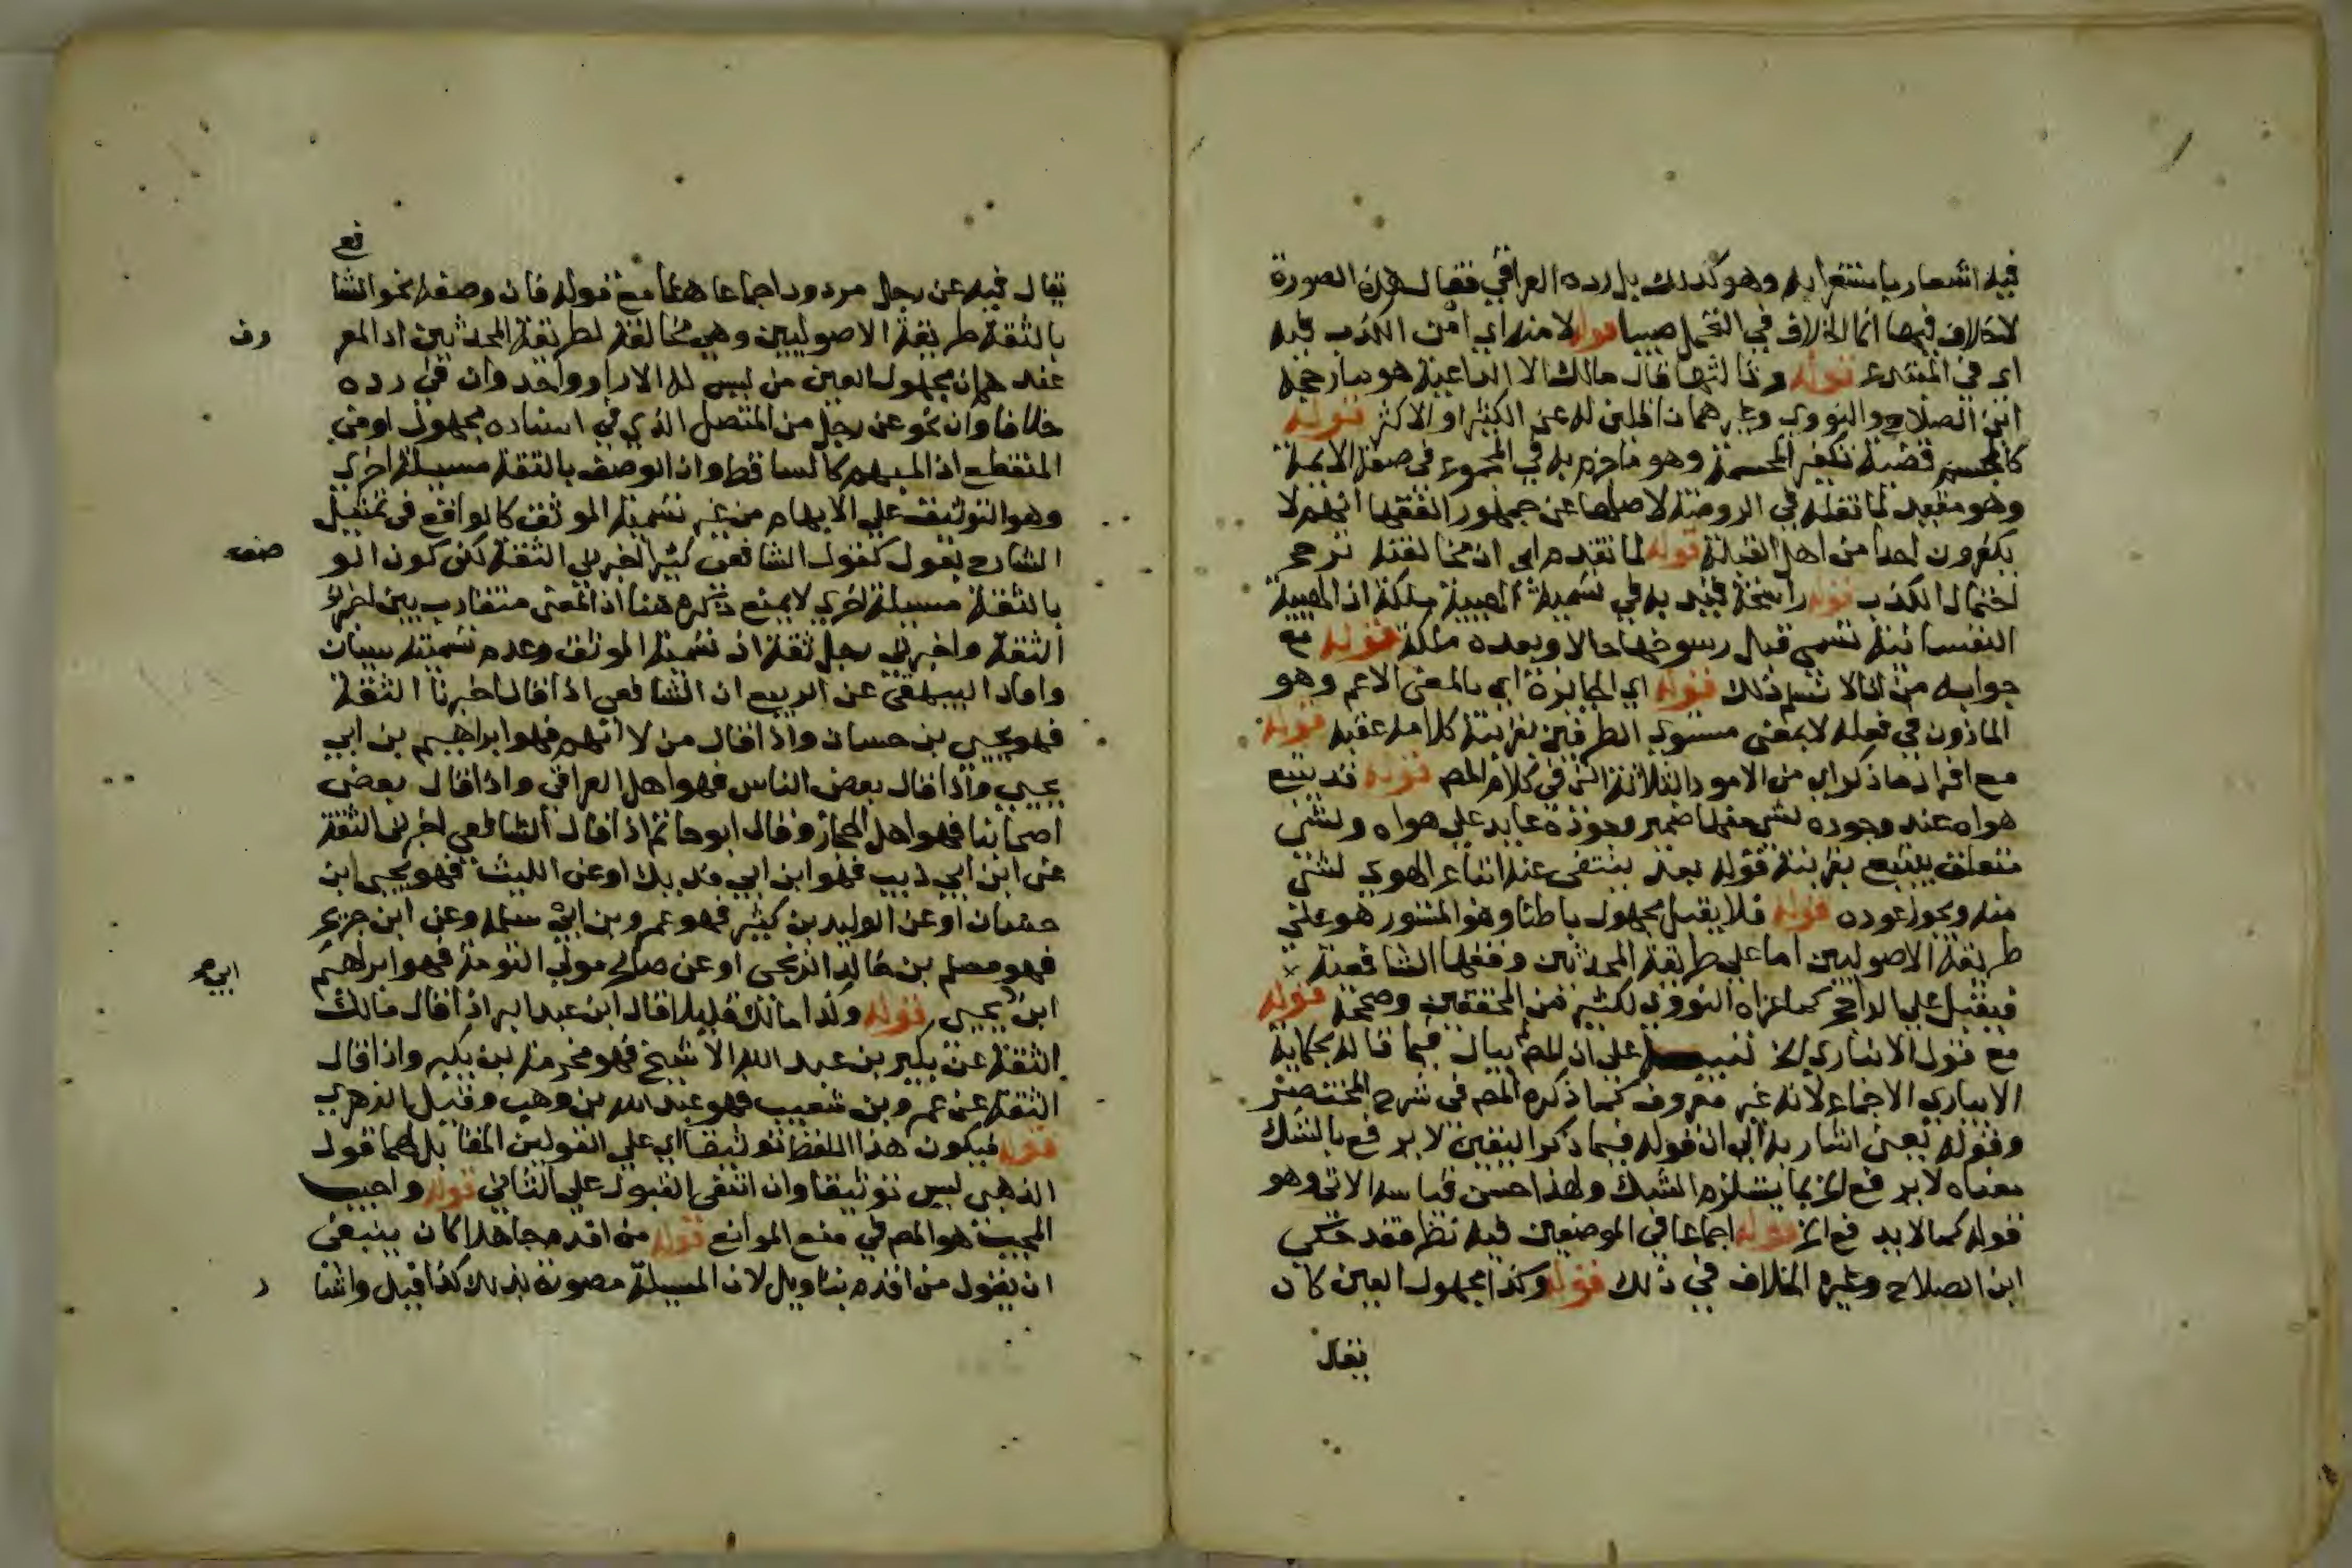 فيه اشعار باستغرابه وهو كذلك بل رده العراقي فقال هذه الصورة
لا خلاف فيها انما الخلاف في التحمل صبيا قوله لا منه اي امن الكذب فيه
اي في المبتدع قوله وثالثها قال مالك الا الداعية هو ما رجحه
ابن الصلاح والنووي وغيرهما ناقلين له عن الكثير او الاكثر قوله
كالمجسم قضية تكفير المجسمة وهو ما جزم به في المجموع في صفة الايمة
وهو مقيد لما نقله في الروضة لاصلها عن جمهور الفقها انهم لا
يكفرون احدا من اهل القبلة قوله لما تقدم اي ان مخالفته ترجح
احتمال الكذب قوله راسخة قيد به في تسمية الهيية ملكة اذ الهيية
النفسانية تسمى قبل رسوخها حالا وبعده ملكة قوله مع
جوابه من انا لا نسلم ذلك قوله اي الجايزة اي بالمعنى الاعم وهو
الماذون في فعله لا بمعنى مستوي الطرفين بقرينة كلامه عقبه قوله
مع افراد ما ذكر اي من الامور الثلاثة التي في كلام المص قوله قد يتبع
هواه عند وجوده لشي منها ضمير وجوده عايد على هواه ولشي
متعلق بيتبع بقرينة قوله بعد ينتفى عنه اتباع الهوي لشي
منه ويجوز عوده قوله فلا يقبل مجهول باطنا وهو المستور هو على
طريقة الاصوليين اما على طريقة المحدثين وفقها الشافعية
فيقبل على الراجح كما عزاه النووي لكثير من المحققين وصححه قوله
مع قول الابياري الخ تنبيه على ان للمص يبال فيما قاله بحكاية
الابياري الاجماع لانه غير معروف كما ذكره المص في شرح المختصر
وقوله يعني اشار به الى ان قوله فيما ذكر اليقين لا يرفع بالشك
معناه لا يرفع الخ بما يستلزم الشك ولهذا حسن قياسه الاتي وهو
قوله كما لا يرفع الخ قوله اجماعا في الموضعين فيه نظر فقد حكي
ابن الصلاح وغيره الخلاف في ذلك قوله وكذا مجهول العين كان
يقال
يقال فيه عن رجل مردود اجماعا هما مع قوله فان وصفه نحو الشافع
بالثقة طريقة الاصوليين وهي مخالفة لطريقة المحدثين اذ المعروف
عندهم ان مجهول العين من ليس له الا راو واحد وان في رده
خلافا وان نحو عن رجل من المتصل الذي في اسناده مجهول او من
المنقطع اذ المبهم كالساقط وان الوصف بالثقة مسيلة اخري
وهو التوثيق على الابهام من غير تسمية الموثق كالواقع في تمثيل
الشارح بقول كقول الشافعي كثيرا اخبرني الثقة لكن كون الوصف
بالثقة مسيلة اخري لا يمنع ذكره هنا اذ المعنى متقارب بين اخبرني
الثقة واخبرني رجل ثقة اذ تسمية الموثق وعدم تسميته سيان
وافاد البيهقي عن الربيع ان الشافعي اذا قال اخبرنا الثقة
فهو يحيى بن حسان واذا قال من لا اتهم فهو ابراهيم بن ابي
يحيى واذا قال بعض الناس فهو اهل العراق واذا قال بعض
اصحابنا فهو اهل الحجاز وقال ابو حاتم اذا قال الشافعي اخبرني الثقة
عن ابن ابي ذيب فهو ابن ابي فديك او عن الليث فهو يحيى ابن
حسان او عن الوليد بن كثير فهو عمرو بن ابي سلمه وعن ابن جريج
فهو مسلم بن خالد الزنجي او عن صالح مولى التومة فهو ابراهيم
ابي
ابن يحيى قوله وكذا مالك قليلا قال ابن عبد البر اذا قال مالك
الثقة عن بكير بن عبد الله الاشبح فهو مخرمة بن بكير واذا قال
الثقة عن عمرو بن شعيب فهو عبد الله بن وهب وقيل الزهري
قوله فيكون هذا اللفظ توثيقا اي على القولين المقابل لهما قول
الذهبي ليس توثيقا وان انتفى القبول على الثاني قوله واجيب
المجيب هو المص في منع الموانع قوله من اقدم جاهلا كان ينبغي
ان يقول من اقدم بتاويل لان المسيلة مصونة بذلك كذا قيل واشار